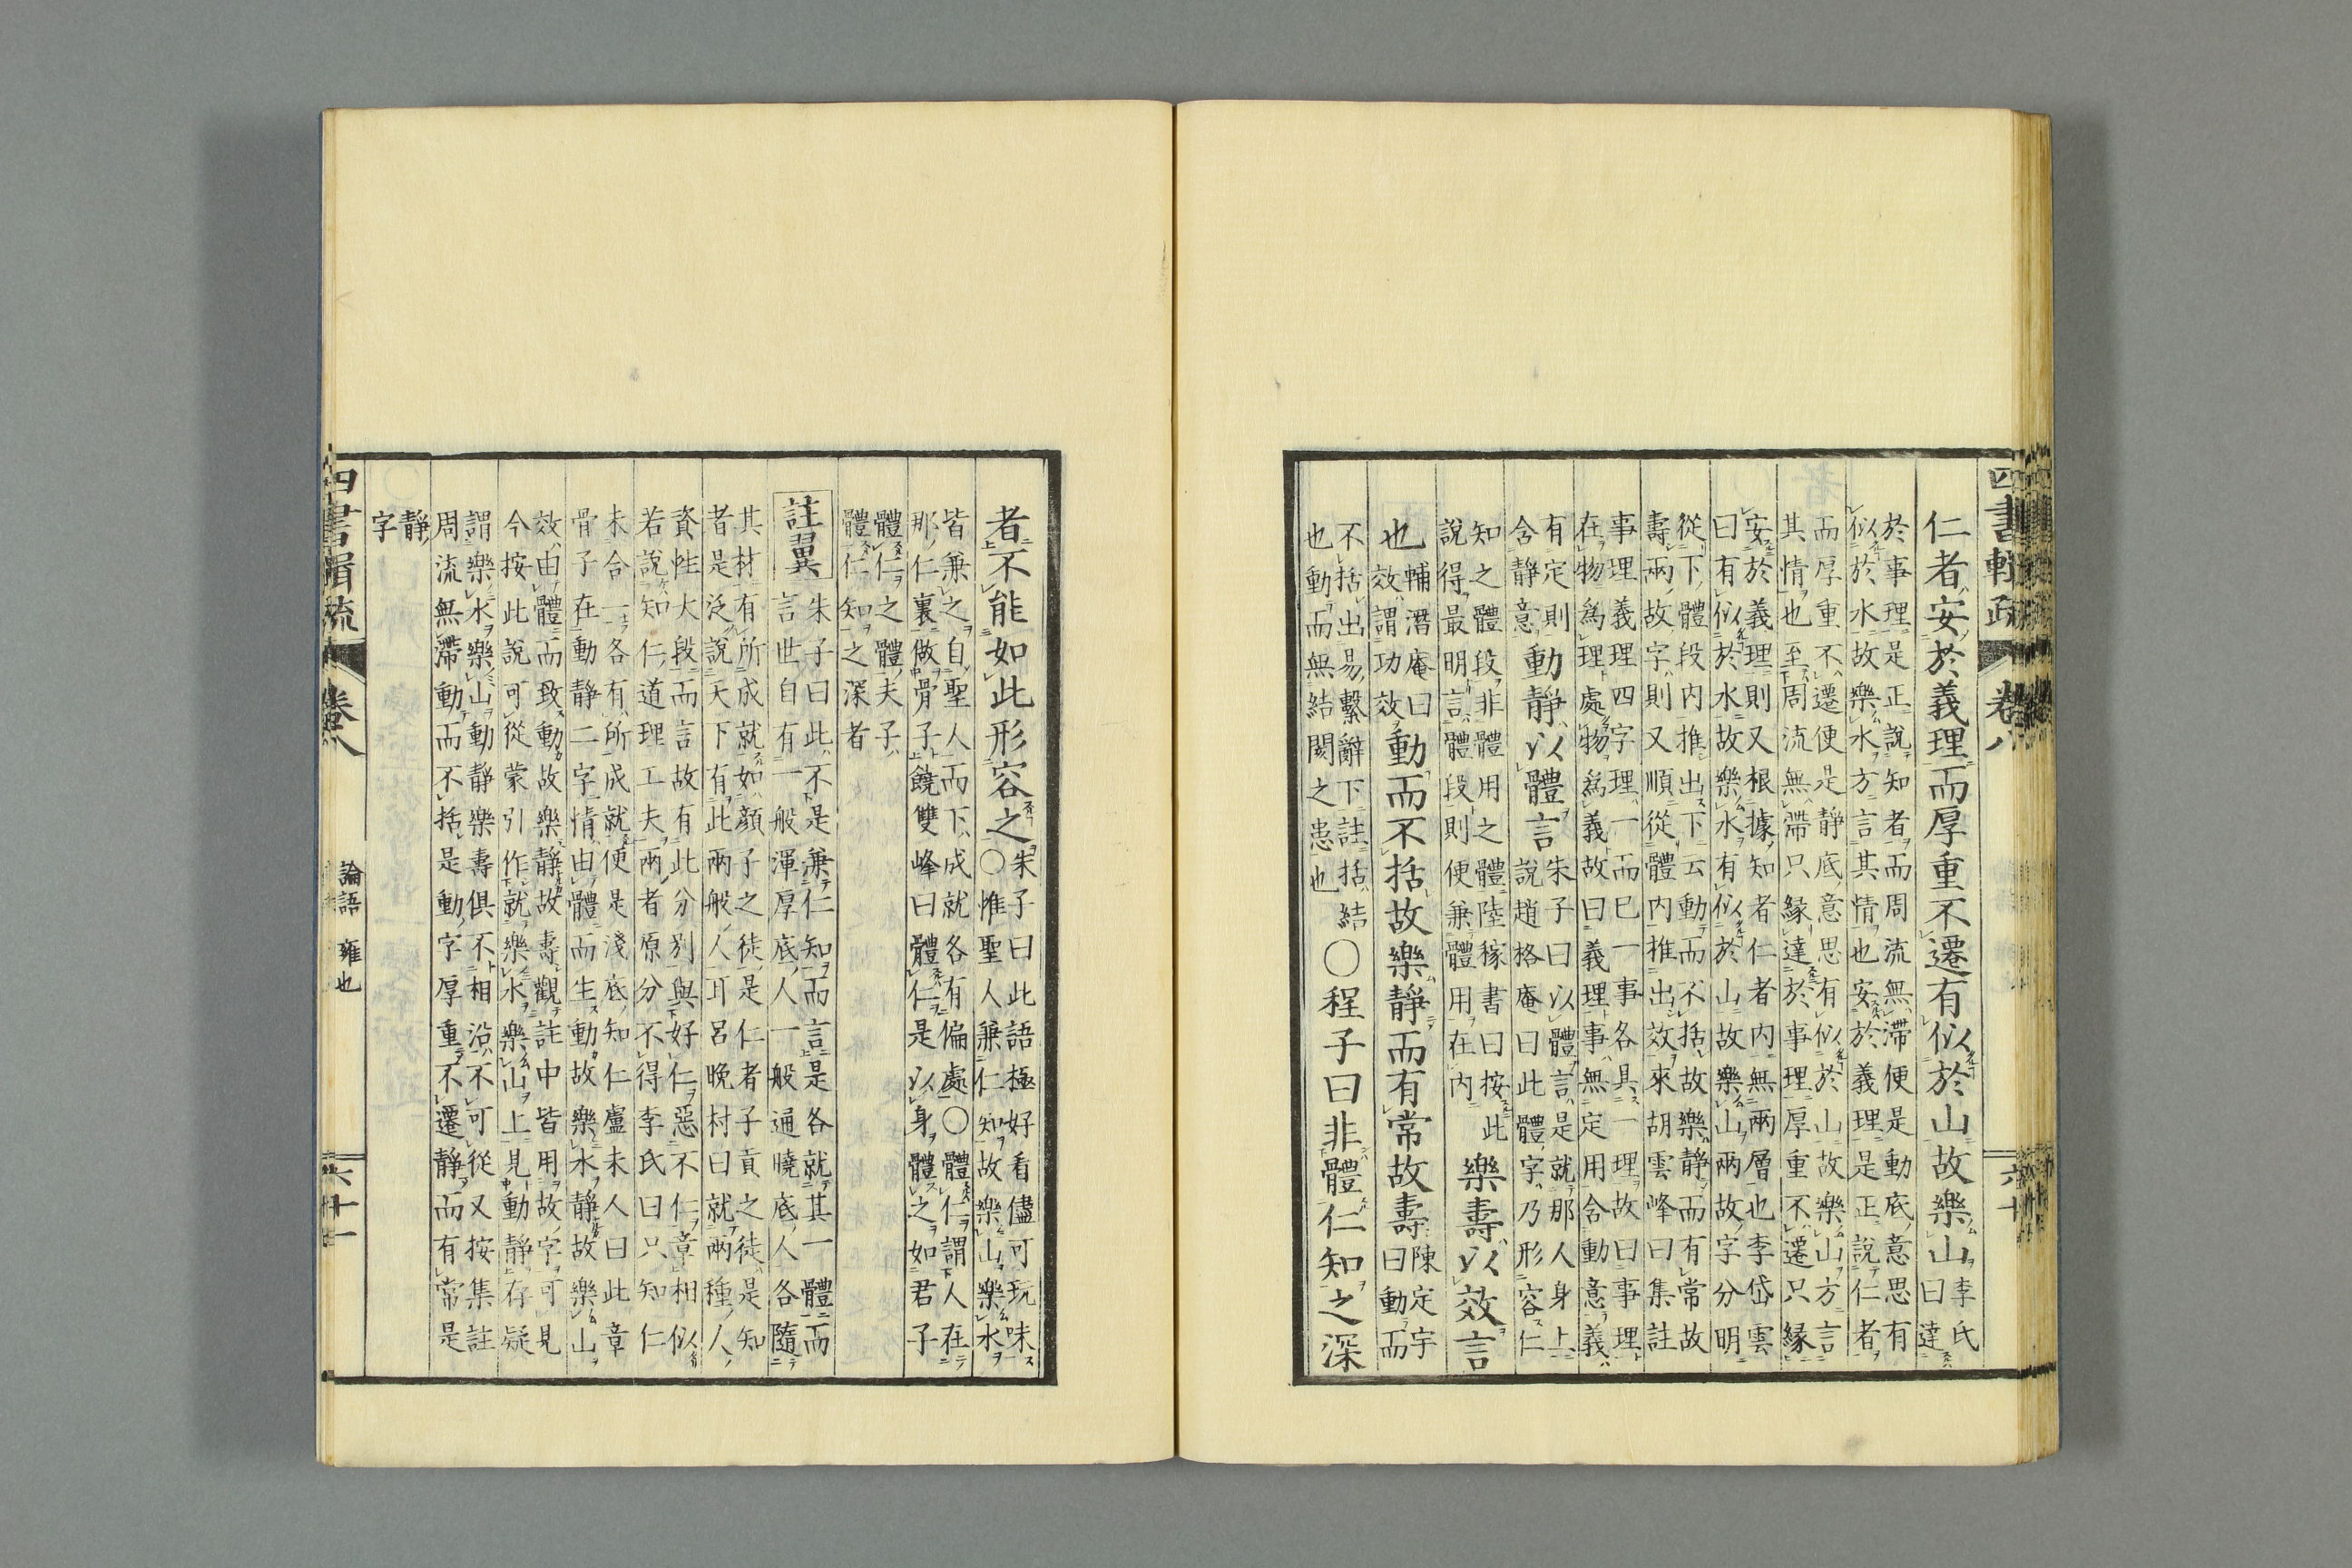 四書輯疏 卷八 六十
仁者安於義理而厚重不遷有似於山故樂山李氏
曰達
於事理是正說知者而周流無滯便是動底意思有
似於水故樂水方言其情也安於義理是正說仁者
而厚重不遷便是静底意思有似於山故樂山方言
其情也至周流無滯只縁達於事理厚重不遷只縁
安於義理則又根據知者仁者内無兩層也李岱雲
曰有似於水故樂水有似於山故樂山兩故字分明
從下體段内推出下云動而不括故樂静而有常故
壽兩故字則又順從體内推出效來胡雲峰曰集註
事理義理四字理一而已一事各具一理故曰事理
在物為理處物為義故曰義理事無定用含動意義
有定則
含静意
動静以體言
朱子曰以體言是就那人身上
說趙格庵曰此體字乃形容仁
知之體段非體用之體陸稼書曰按此
說得最明言體段則便兼體用在内
樂壽以效言
也
輔潛庵曰
效謂功效
動而不括故樂静而有常故壽
陳定宇
曰動而
不括出易繫辭下註括結
也動而無結閡之患也
○程子曰非體仁知之深
者不能如此形容之
朱子曰此語極好看儘可玩味
○惟聖人兼仁知故樂山樂水
皆兼之自聖人而下成就各有偏處○體仁謂人在
那仁裏做骨子饒雙峰曰體仁是以身體之如君子
體仁之體夫子
體仁知之深者
註翼
朱子曰此不是兼仁知而言是各就其一體而
言世自有一般渾厚底人一般通曉底人各隨
其材有所成就如顏子之徒是仁者子貢之徒是知
者是泛說天下有此兩般人耳呂晚村曰就兩種人
資性大段而言故有此分別與好仁惡不仁章相似
若說知仁道理工夫兩者原分不得李氏曰只知仁
未合一各有所成就便是淺底知仁盧未人曰此章
骨子在動静二字情由體而生動故樂水静故樂山
效由體而致動故樂静故壽觀註中皆用故字可見
今按此說可從蒙引作就樂水樂山上見動静存疑
謂樂水樂山動静樂壽俱不相沿不可從又按集註
周流無滯動而不括是動字厚重不遷静而有常是
静
字
四書輯疏 卷八 論語 雍也 六十一